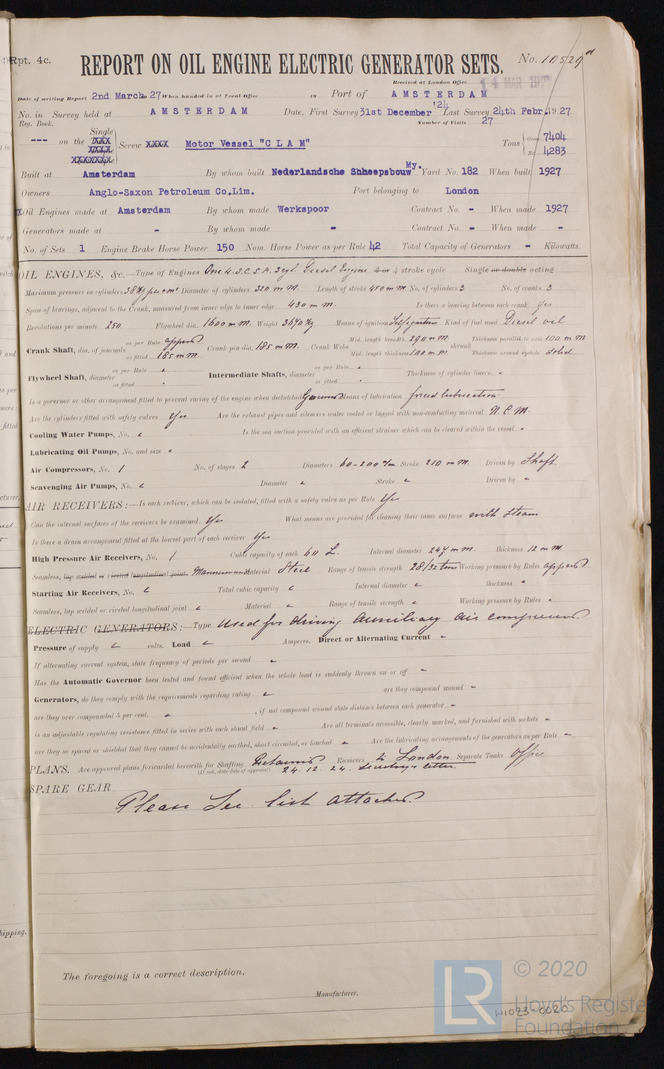 Rpt. 4c.
REPORT ON OIL ENGINE ELECTRIC GENERATOR SETS.
No. 10529
Received at London Office 14 MAR 19
Date of writing Report 2nd March 27 When handed in at Local Office 19 Port of AMSTERDAM
No. in Survey held at AMSTERDAM Date, First Survey 31st December '24 Last Survey 24th Febr. 1927
Reg. Book. Number of Visits 27
--- on the Single Screw XXXX Motor Vessel "CLAM" Tons 7404
4283
Built at Amsterdam By whom built Nederlandsche Shheepsbouw My. Yard No. 182 When built 1927
Owners Anglo-Saxon Petroleum Co.Lim. Port belonging to London
Oil Engines made at Amsterdam By whom made Werkspoor Contract No. - When made 1927
Generators made at - By whom made - Contract No. - When made -
No. of Sets 1 Engine Brake Horse Power 150 Nom. Horse Power as per Rule 42 Total Capacity of Generators - Kilowatts.
OIL ENGINES, &c.—Type of Engines One 4.S.C.S.A. 3cyl Diesel Engine 2 or 4 stroke cycle Single or double acting
Maximum pressure in cylinders Diameter of cylinders 320 m.m. Length of stroke 450 m.m. No. of cylinders 3 No. of cranks 3
Span of bearings, adjacent to the Crank, measured from inner edge to inner edge 430 m.m. Is there a bearing between each crank yes
Revolutions per minute 250 Flywheel dia. 1600 m.m. Weight 3670 kg Means of ignition Selfignition Kind of fuel used Diesel oil
Crank Shaft, dia. of journals as per Rule appvd as fitted 185 m.m. Crank pin dia. 185 m.m. Crank Webs Mid. length breadth 290 m.m. Mid. length thickness 100 m.m. Thickness parallel to axis 100 m.m. shrunk Thickness around eyehole solid
Flywheel Shaft, diameter as per Rule as fitted Intermediate Shafts, diameter as per Rule as fitted Thickness of cylinder liners
Is a governor or other arrangement fitted to prevent racing of the engine when declutched Governor Means of lubrication forced lubrication
Are the cylinders fitted with safety valves Yes Are the exhaust pipes and silencers water cooled or lagged with non-conducting material N.C.M.
Cooling Water Pumps, No. Is the sea suction provided with an efficient strainer which can be cleared within the vessel
Lubricating Oil Pumps, No. and size
Air Compressors, No. 1 No. of stages 2 Diameters 60-200 m/m Stroke 210 m.m. Driven by Shaft
Scavenging Air Pumps, No. Diameter Stroke Driven by
AIR RECEIVERS:—Is each receiver, which can be isolated, fitted with a safety valve as per Rule Yes
Can the internal surfaces of the receivers be examined Yes What means are provided for cleaning their inner surfaces with steam
Is there a drain arrangement fitted at the lowest part of each receiver Yes
High Pressure Air Receivers, No. 1 Cubic capacity of each 60 L. Internal diameter 247 m.m. thickness 12 m.m.
Seamless, lap welded or riveted longitudinal joint Material Steel Range of tensile strength 28/32 tons Working pressure by Rules appvd
Starting Air Receivers, No. Total cubic capacity Internal diameter thickness
Seamless, lap welded or riveted longitudinal joint Material Range of tensile strength Working pressure by Rules
ELECTRIC GENERATORS:—Type used for driving auxiliary air compressor
Pressure of supply volts. Load Amperes. Direct or Alternating Current
If alternating current system, state frequency of periods per second
Has the Automatic Governor been tested and found efficient when the whole load is suddenly thrown on or off
Generators, do they comply with the requirements regarding rating are they compound wound
are they over compounded 5 per cent. , if not compound wound state distance between each generator
is an adjustable regulating resistance fitted in series with each shunt field Are all terminals accessible, clearly marked, and furnished with sockets
are they so spaced or shielded that they cannot be accidentally earthed, short circuited, or touched Are the lubricating arrangements of the generators as per Rule
PLANS. Are approved plans forwarded herewith for Shafting Returned Receivers to London Separate Tanks office
(If not, state date of approval) 24.12.24. Secretary's letter.
SPARE GEAR
Please See list attached
The foregoing is a correct description,
Manufacturer.
LR © 2020
Lloyd's Register
Foundation
W1023-0020